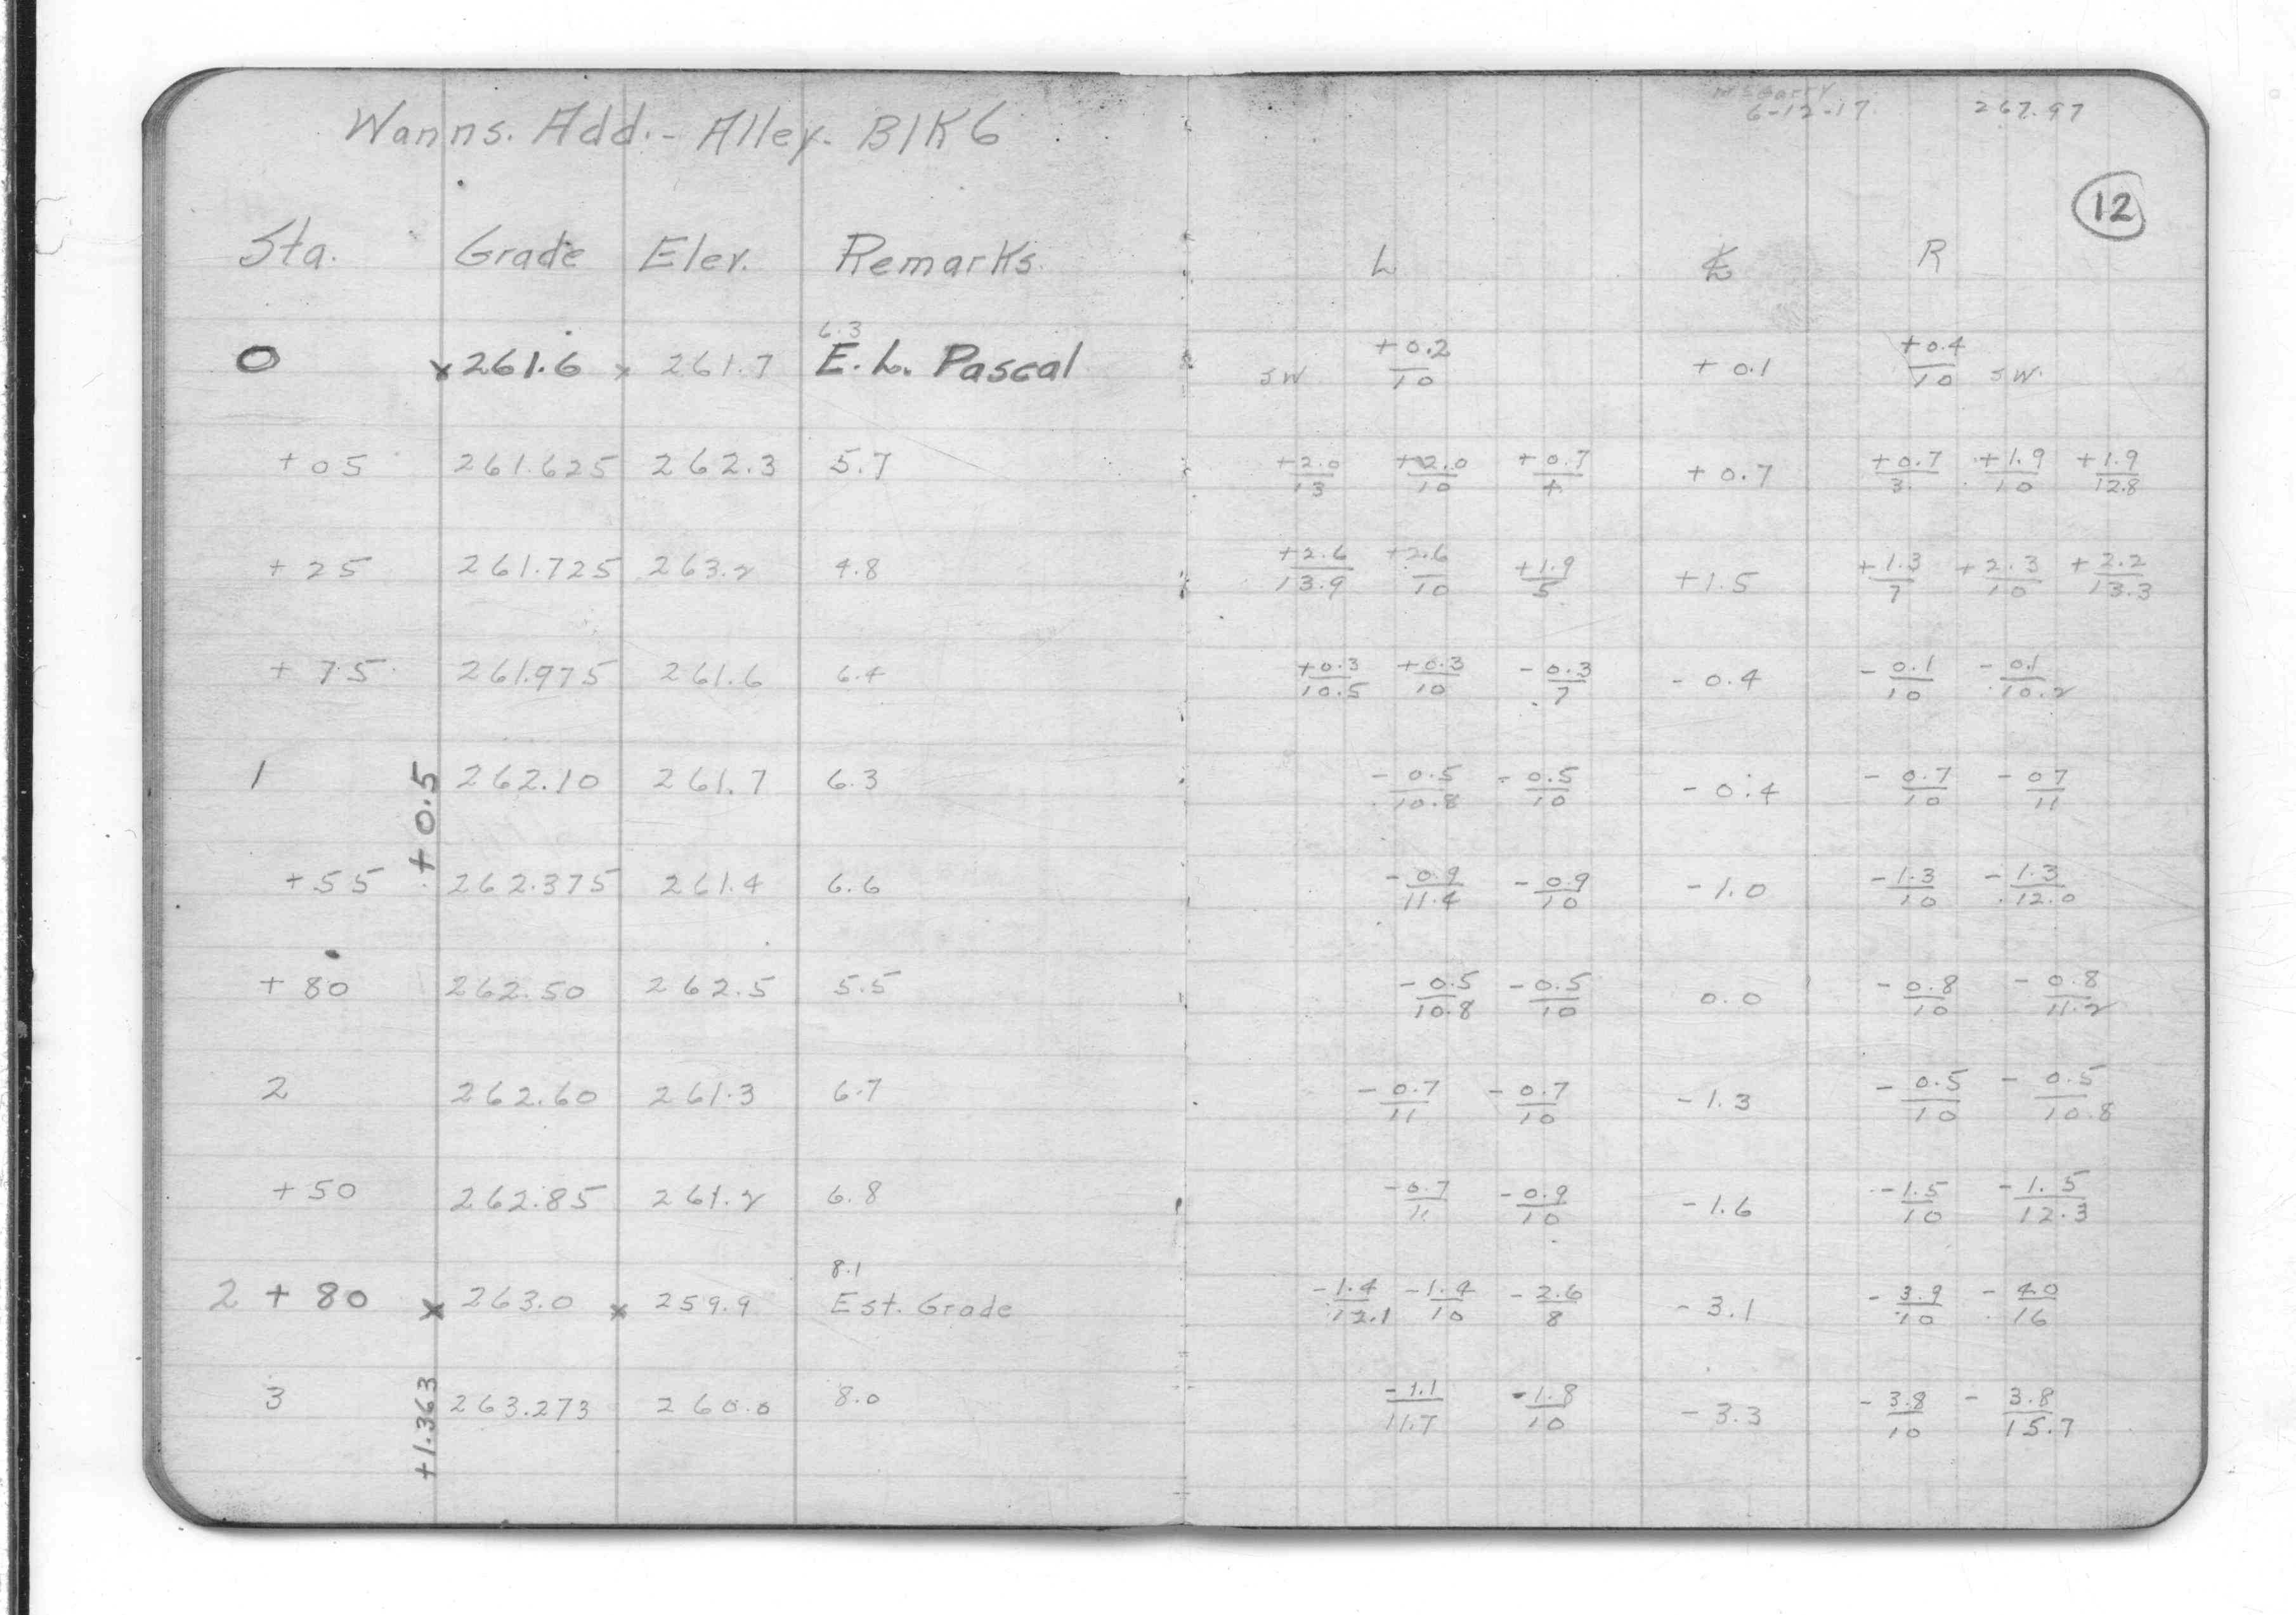 Wanns. Add. - Alley. Blk 6
6-12-17 267.97
12
Sta. Grade Elev. Remarks. L ℄ R
6.3
0 x 261.6 x 261.7 E. L. Pascal SW +0.2/10 +0.1 +0.4/10 SW.
+05 261.625 262.3 5.7 +2.0/13 +2.0/10 +0.7/4 +0.7 +0.7/3. +1.9/10 +1.9/12.8
+25 261.725 263.2 4.8 +2.6/13.9 +2.6/10 +1.9/5 +1.5 +1.3/7 +2.3/10 +2.2/13.3
+75 261.975 261.6 6.4 +0.3/10.5 +0.3/10 -0.3/7 -0.4 -0.1/10 -0.1/10.2
1 262.10 261.7 6.3 -0.5/10.8 -0.5/10 -0.4 -0.7/10 -07/11
+0.5
+55 262.375 261.4 6.6 -0.9/11.4 -0.9/10 -1.0 -1.3/10 -1.3/12.0
+80 262.50 262.5 5.5 -0.5/10.8 -0.5/10 0.0 -0.8/10 -0.8/11.2
2 262.60 261.3 6.7 -0.7/11 -0.7/10 -1.3 -0.5/10 -0.5/10.8
+50 262.85 261.2 6.8 -0.7/11 -0.9/10 -1.6 -1.5/10 -1.5/12.3
8.1
2+80 x 263.0 x 259.9 Est. Grade -1.4/12.1 -1.4/10 -2.6/8 -3.1 -3.9/10 -4.0/16
3 263.273 260.0 8.0 -1.1/11.7 -1.8/10 -3.3 -3.8/10 -3.8/15.7
+1.363